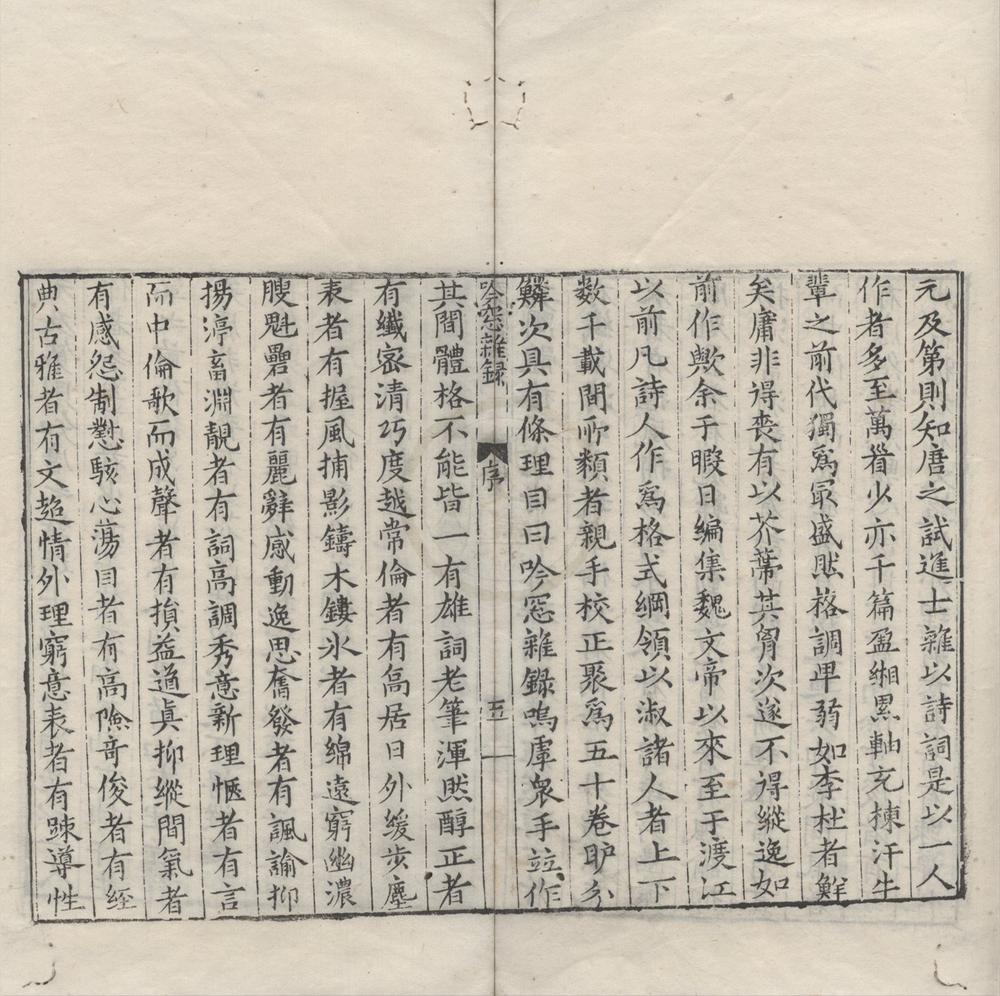 元及第則知唐之試進士雜以詩詞是以一人
作者多至萬首少亦千篇盈緗累軸充棟汗牛
輩之前代獨爲冣盛然格調卑弱如李杜者鮮
矣庸非得喪有以芥蔕其胷次遂不得縱逸如
前作歟余于暇日編集魏文帝以來至于渡江
以前凡詩人作爲格式綱領以淑諸人者上下
数千載間所類者親手校正聚爲五十卷臚分
鱗次具有條理目曰吟窓雜録嗚虖衆手竝作
吟窓雜録 序 五
其間體格不能皆一有雄詞老筆渾然醇正者
有纖宻清巧度越常倫者有高居日外緩步塵
表者有握風捕影鑄木鏤氷者有綿遠窮幽濃
膄魁礨者有麗辭感動逸思奮發者有諷諭抑
揚渟畜淵靚者有詞高調秀意新理愜者有言
而中倫歌而成聲者有損益道眞抑縱間氣者
有感怨制懟駭心蕩目者有高險竒俊者有經
典古雅者有文超情外理窮意表者有踈導性